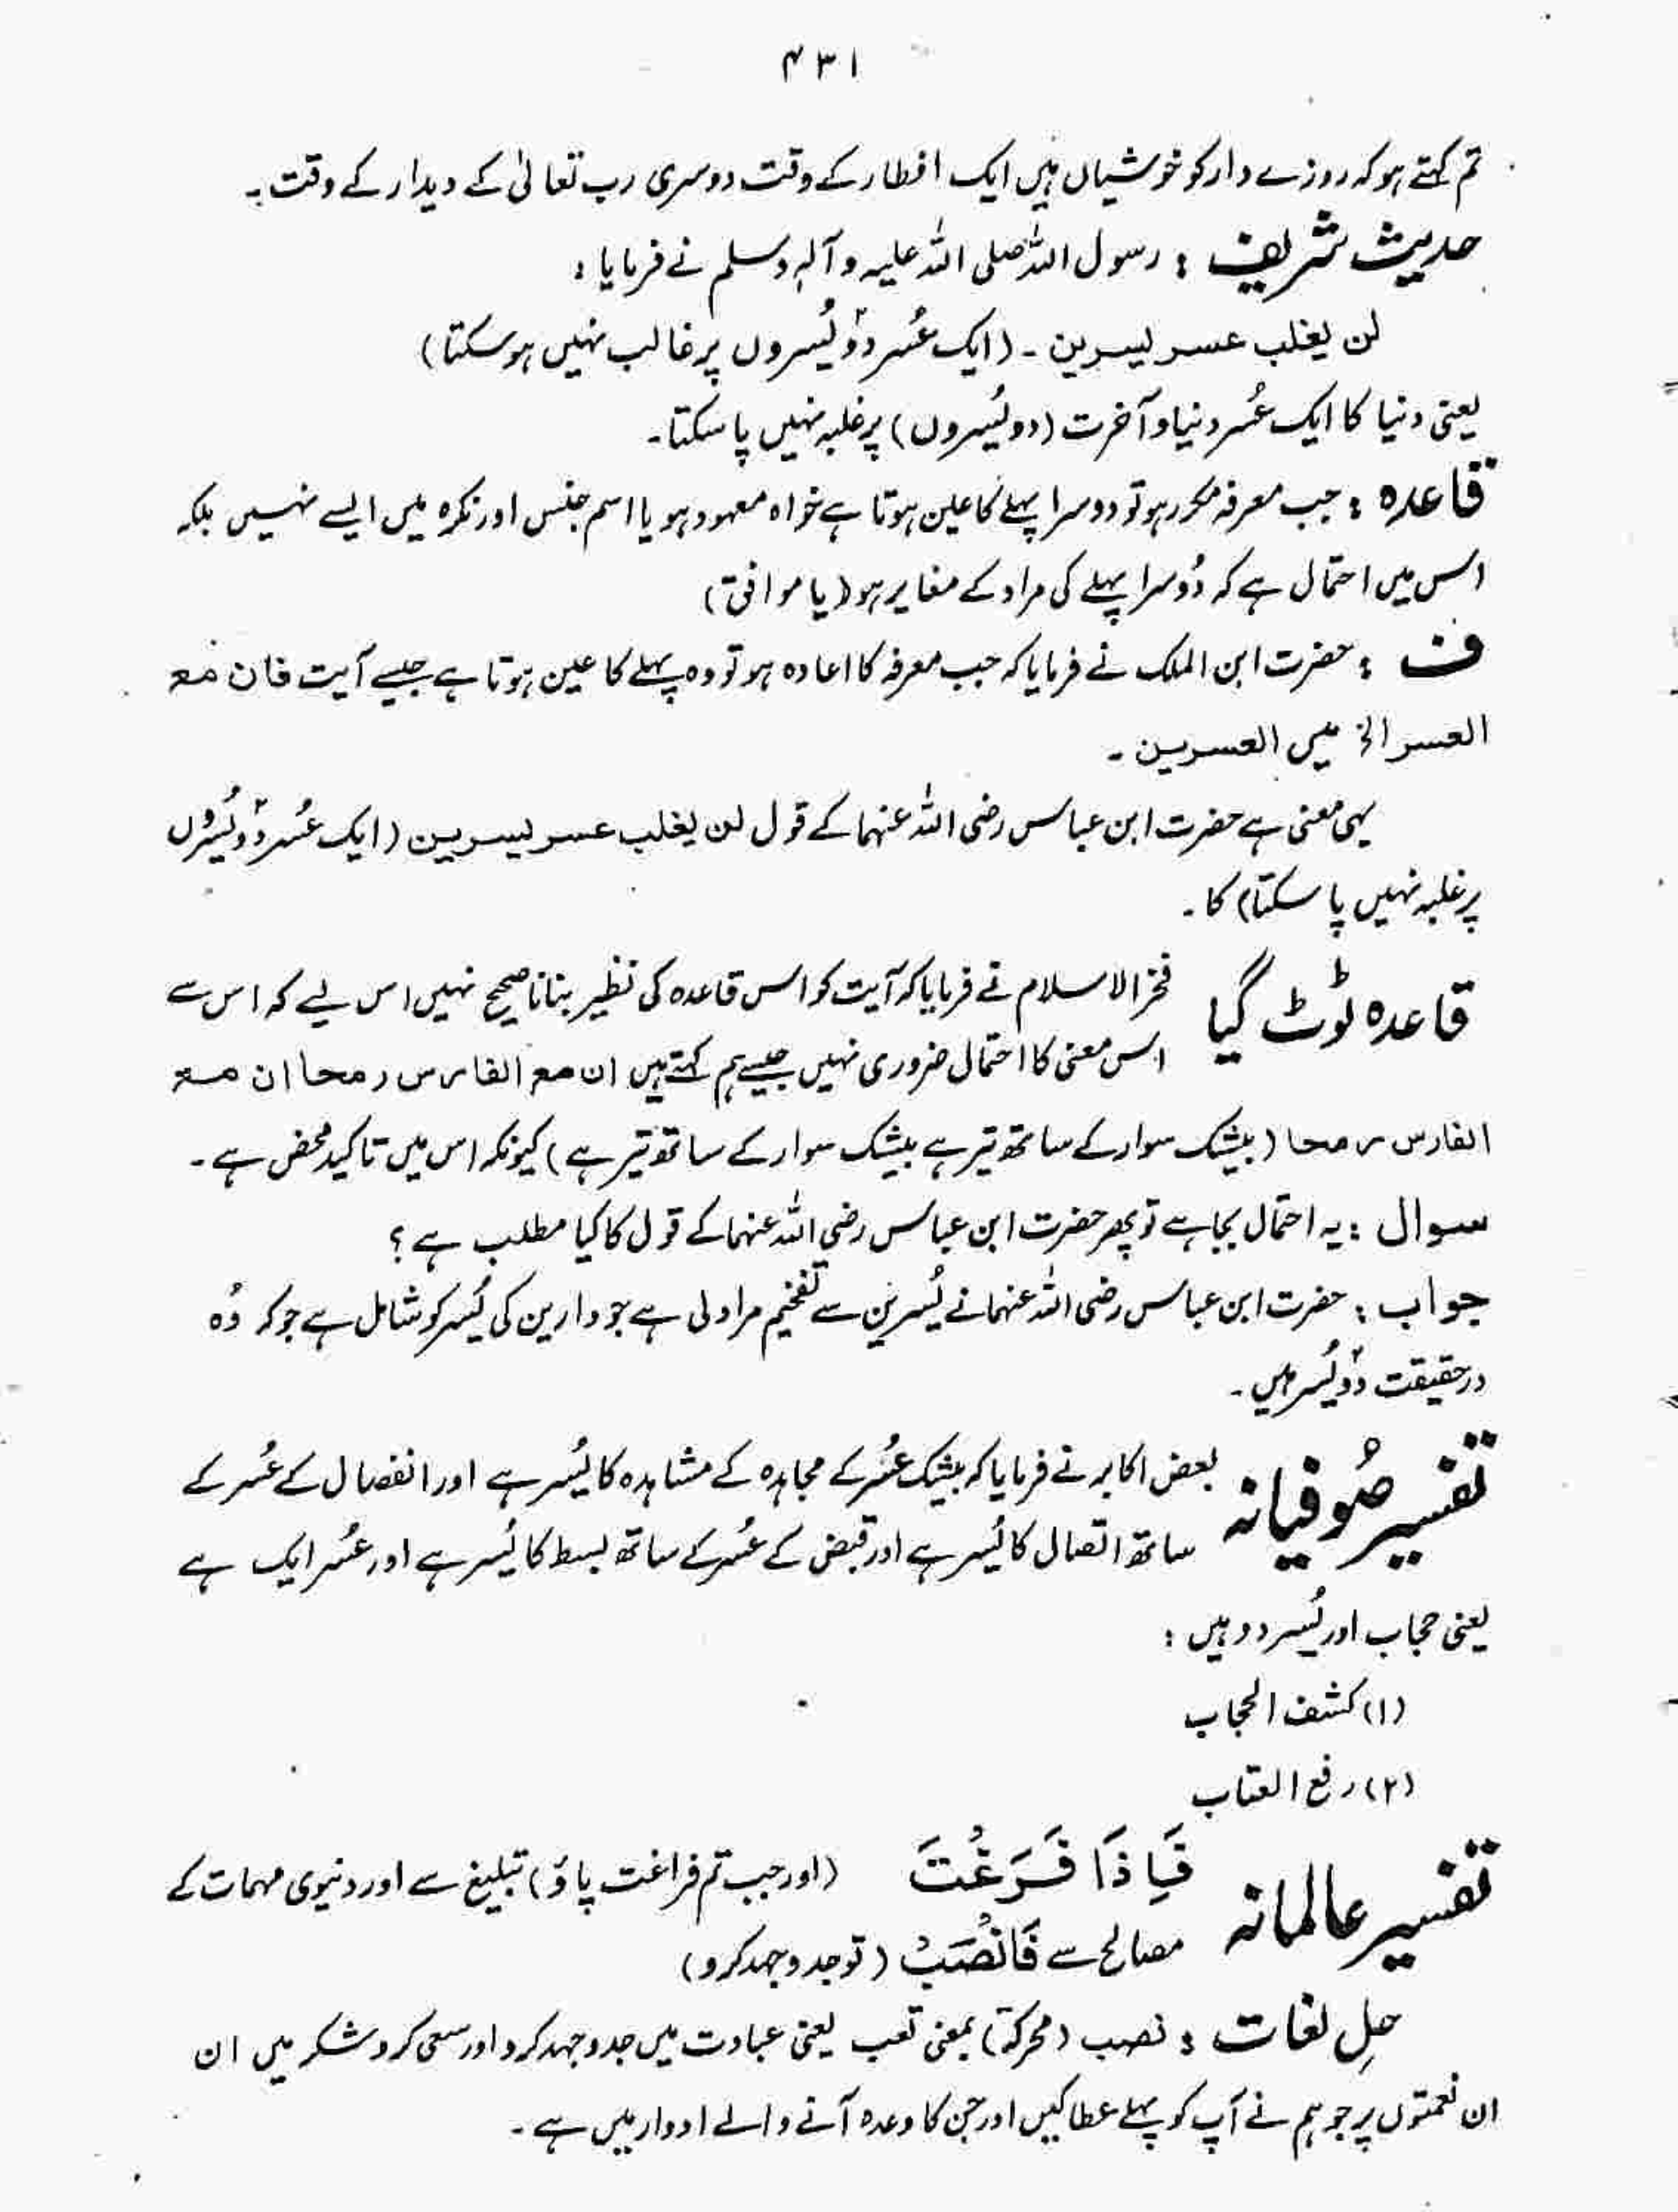 ۴۳۱
تم کہتے ہو کہ روزے دار کو خوشیاں ہیں ایک افطار کے وقت دوسری رب تعالیٰ کے دیدار کے وقت۔
حدیث شریف : رسول اللہ صلی اللہ علیہ وآلہٖ وسلم نے فرمایا :
لن یغلب عسر یسرین ۔ (ایک عُسر دوُ یُسروں پر غالب نہیں ہو سکتا)
یعنی دنیا کا ایک عُسر دنیا و آخرت (دو یُسروں) پر غلبہ نہیں پا سکتا۔
قاعدہ : جب معرفہ مکرر ہو تو دوسرا پہلے کا عین ہوتا ہے خواہ معہود ہو یا اسم جنس اور نکرہ میں ایسے نہیں بلکہ
اس میں احتمال ہے کہ دُوسرا پہلے کی مراد کے مغایر ہو (یا موافق)
ف : حضرت ابن الملک نے فرمایا کہ جب معرفہ کا اعادہ ہو تو وہ پہلے کا عین ہوتا ہے جیسے آیت فان مع
العسر الخ میں العسرین ۔
یہی معنی ہے حضرت ابن عباس رضی اللہ عنہما کے قول لن یغلب عسر یسرین (ایک عُسر دوُ یُسروں
پر غلبہ نہیں پا سکتا) کا ۔
قاعدہ ٹوٹ گیا فخر الاسلام نے فرمایا کہ آیت کو اس قاعدہ کی نظیر بتانا صحیح نہیں اس لیے کہ اس سے
اس معنی کا احتمال ضروری نہیں جیسے ہم کہتے ہیں ان مع الفارس رمحا ان مع
الفارس رمحا (بیشک سوار کے ساتھ تیر ہے بیشک سوار کے ساتھ تیر ہے) کیونکہ اس میں تاکید محض ہے ۔
سوال : یہ احتمال بجا ہے تو پھر حضرت ابن عباس رضی اللہ عنہما کے قول کا کیا مطلب ہے ؟
جواب : حضرت ابن عباس رضی اللہ عنہما نے یُسرین سے تفخیم مراد لی ہے جو دارین کی یُسر کو شامل ہے جو کہ وُہ
درحقیقت دوُ یُسر ہیں ۔
تفسیر صُوفیانہ بعض اکابر نے فرمایا کہ بیشک عُسر کے مجاہدہ کے مشاہدہ کا یُسر ہے اور انفصال کے عُسر کے
ساتھ اتصال کا یُسر ہے اور قبض کے عُسر کے ساتھ بسط کا یُسر ہے اور عُسر ایک ہے
یعنی حجاب اور یُسر دو ہیں :
(۱) کشف الحجاب
(۲) رفع العتاب
تفسیر عالمانہ فَاِذَا فَرَغْتَ (اور جب تم فراغت پاؤ) تبلیغ سے اور دنیوی مہمات کے
مصالح سے فَانْصَبْ (تو جد و جہد کرو)
حلِ لغات : نصب (محرکۃ) بمعنی تعب یعنی عبادت میں جد و جہد کرو اور سعی کرو شکر میں ان
ان نعمتوں پر جو ہم نے آپ کو پہلے عطا کیں اور جن کا وعدہ آنے والے ادوار میں ہے ۔